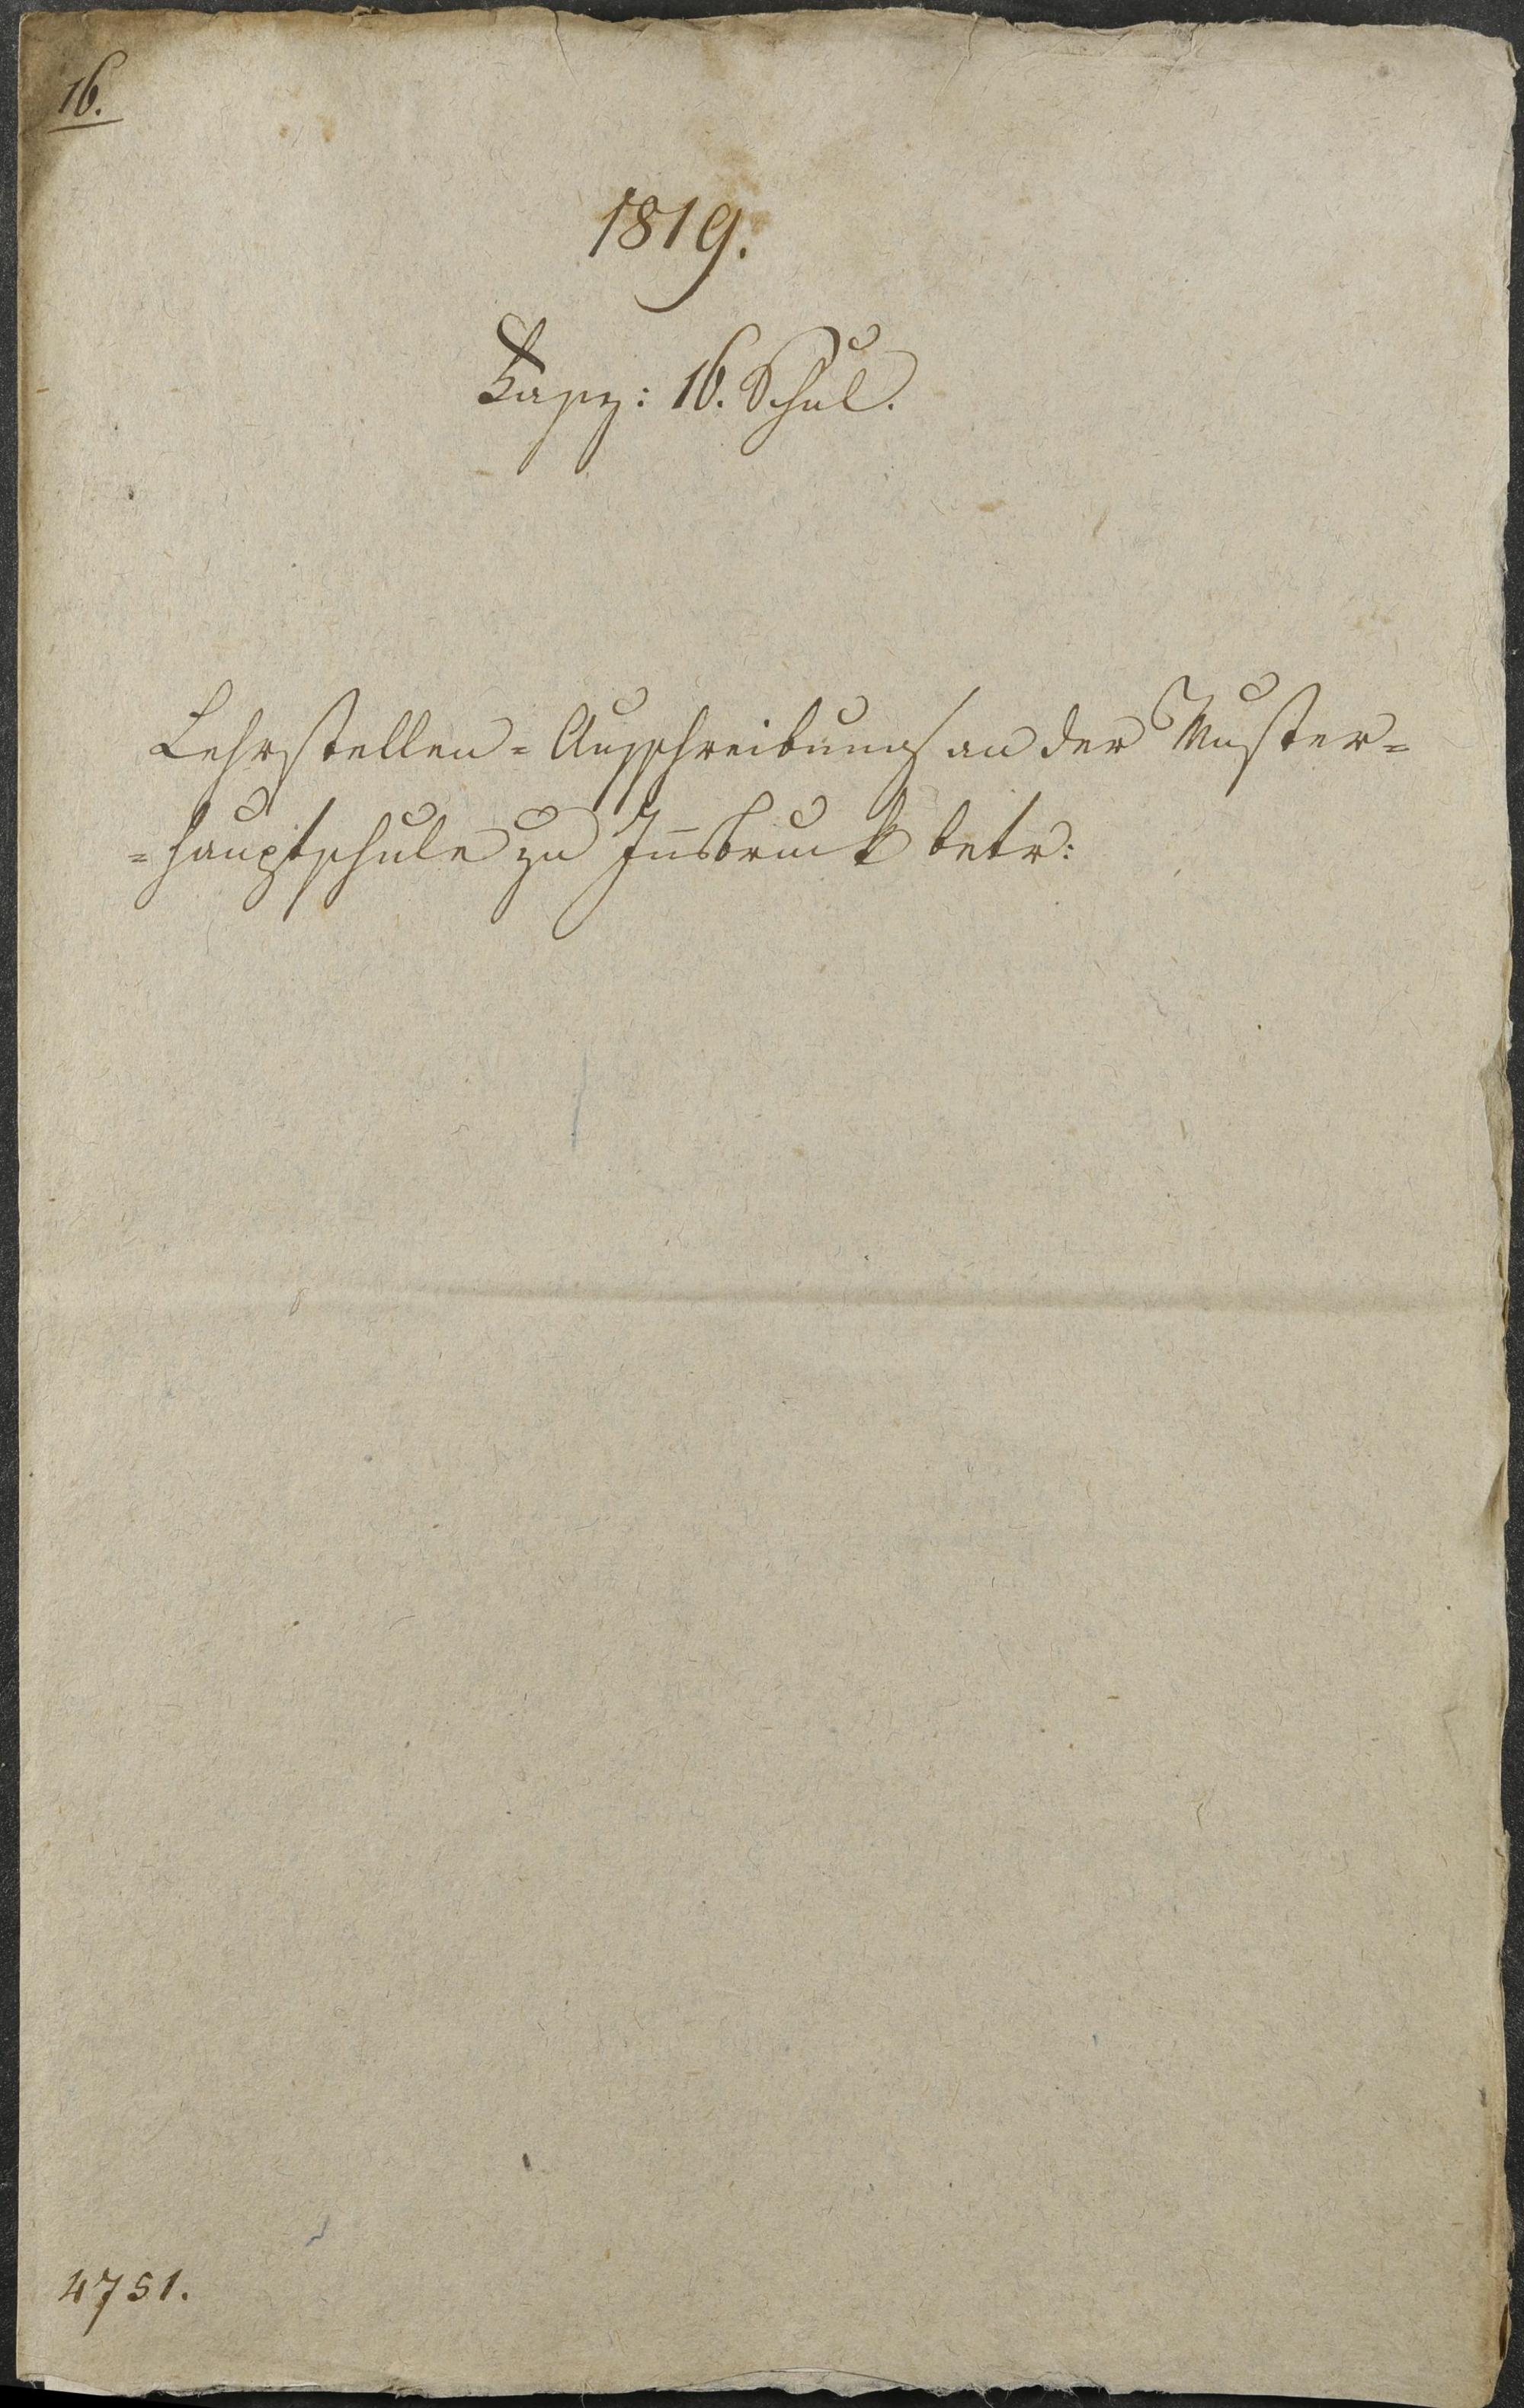 16.
1819.
Fasz: 16. Schul.
Lehrstellen=Ausschreibung an der Muster=
=hauptschule zu Iñsbruck betr:
4751.